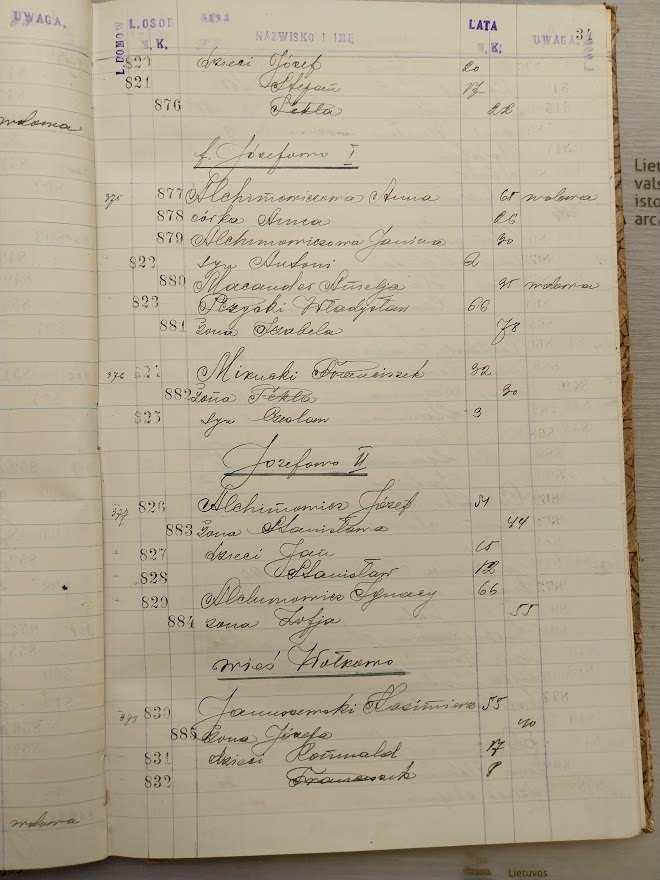 UWAGA.
L. DOMÓW L. OSOB NAZWISKO I IMĘ LATA UWAGA. 34
M. K. M. K.
820 dzieci Józef 20
821 Stefan 17
876 Tekla 22
wdowa
f. Józefowo I
375 877 Alchimowiczowa Anna 65 wdowa
878 córka Anna 26
879 Alchimowiczowa Janina 30
822 syn Antoni 2
880 Macander Amelja 35 wdowa
823 Władysław 66
881 żona Izabela 78
376 824 Mixucki Franciszek 32
882 żona Tekla 30
825 syn Czesław 3
Józefowo II
377 826 Alchimowicz Józef 51
883 żona Stanisława 44
827 dzieci Jan 15
828 Stanisław 12
829 Alchimowicz Ignacy 66
884 żona Zofja 55
wieś Wołkowo
830 Januszewski Kazimierz 55
885 żona Józefa 40
831 dzieci Romuald 17
832 Franciszek 8
wdowa
Liet
vals
isto
arc
Lietuvos